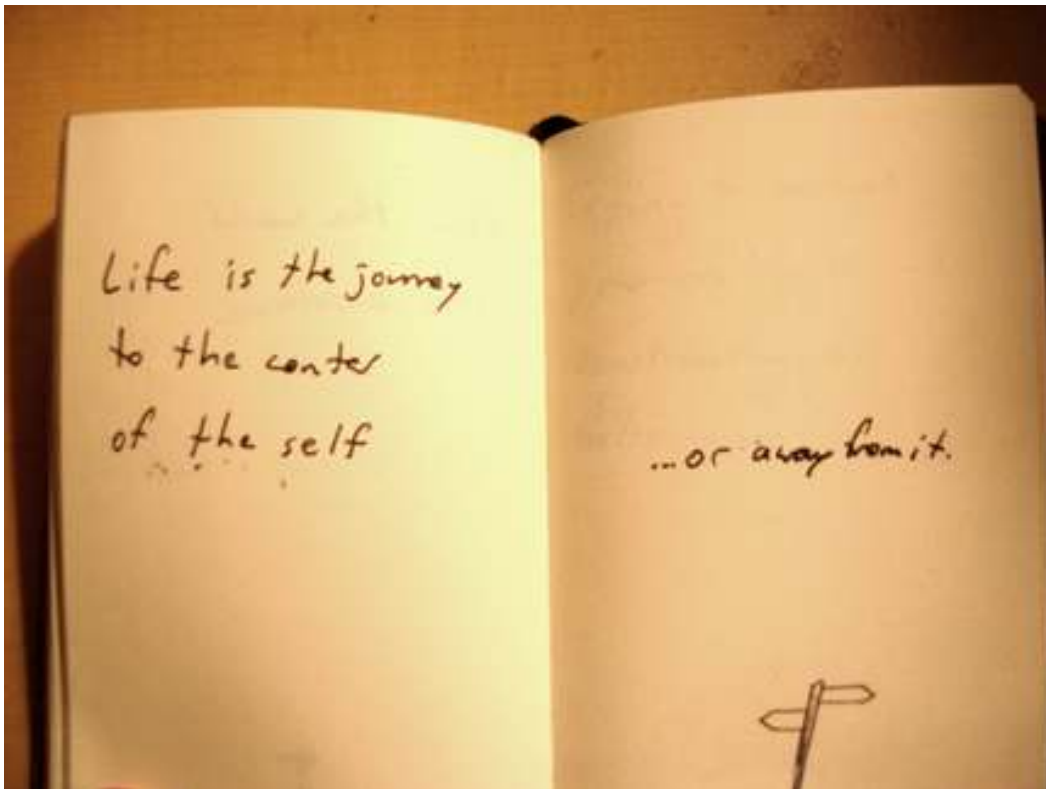 Life is the journey
to the center
of the self
...or away from it.